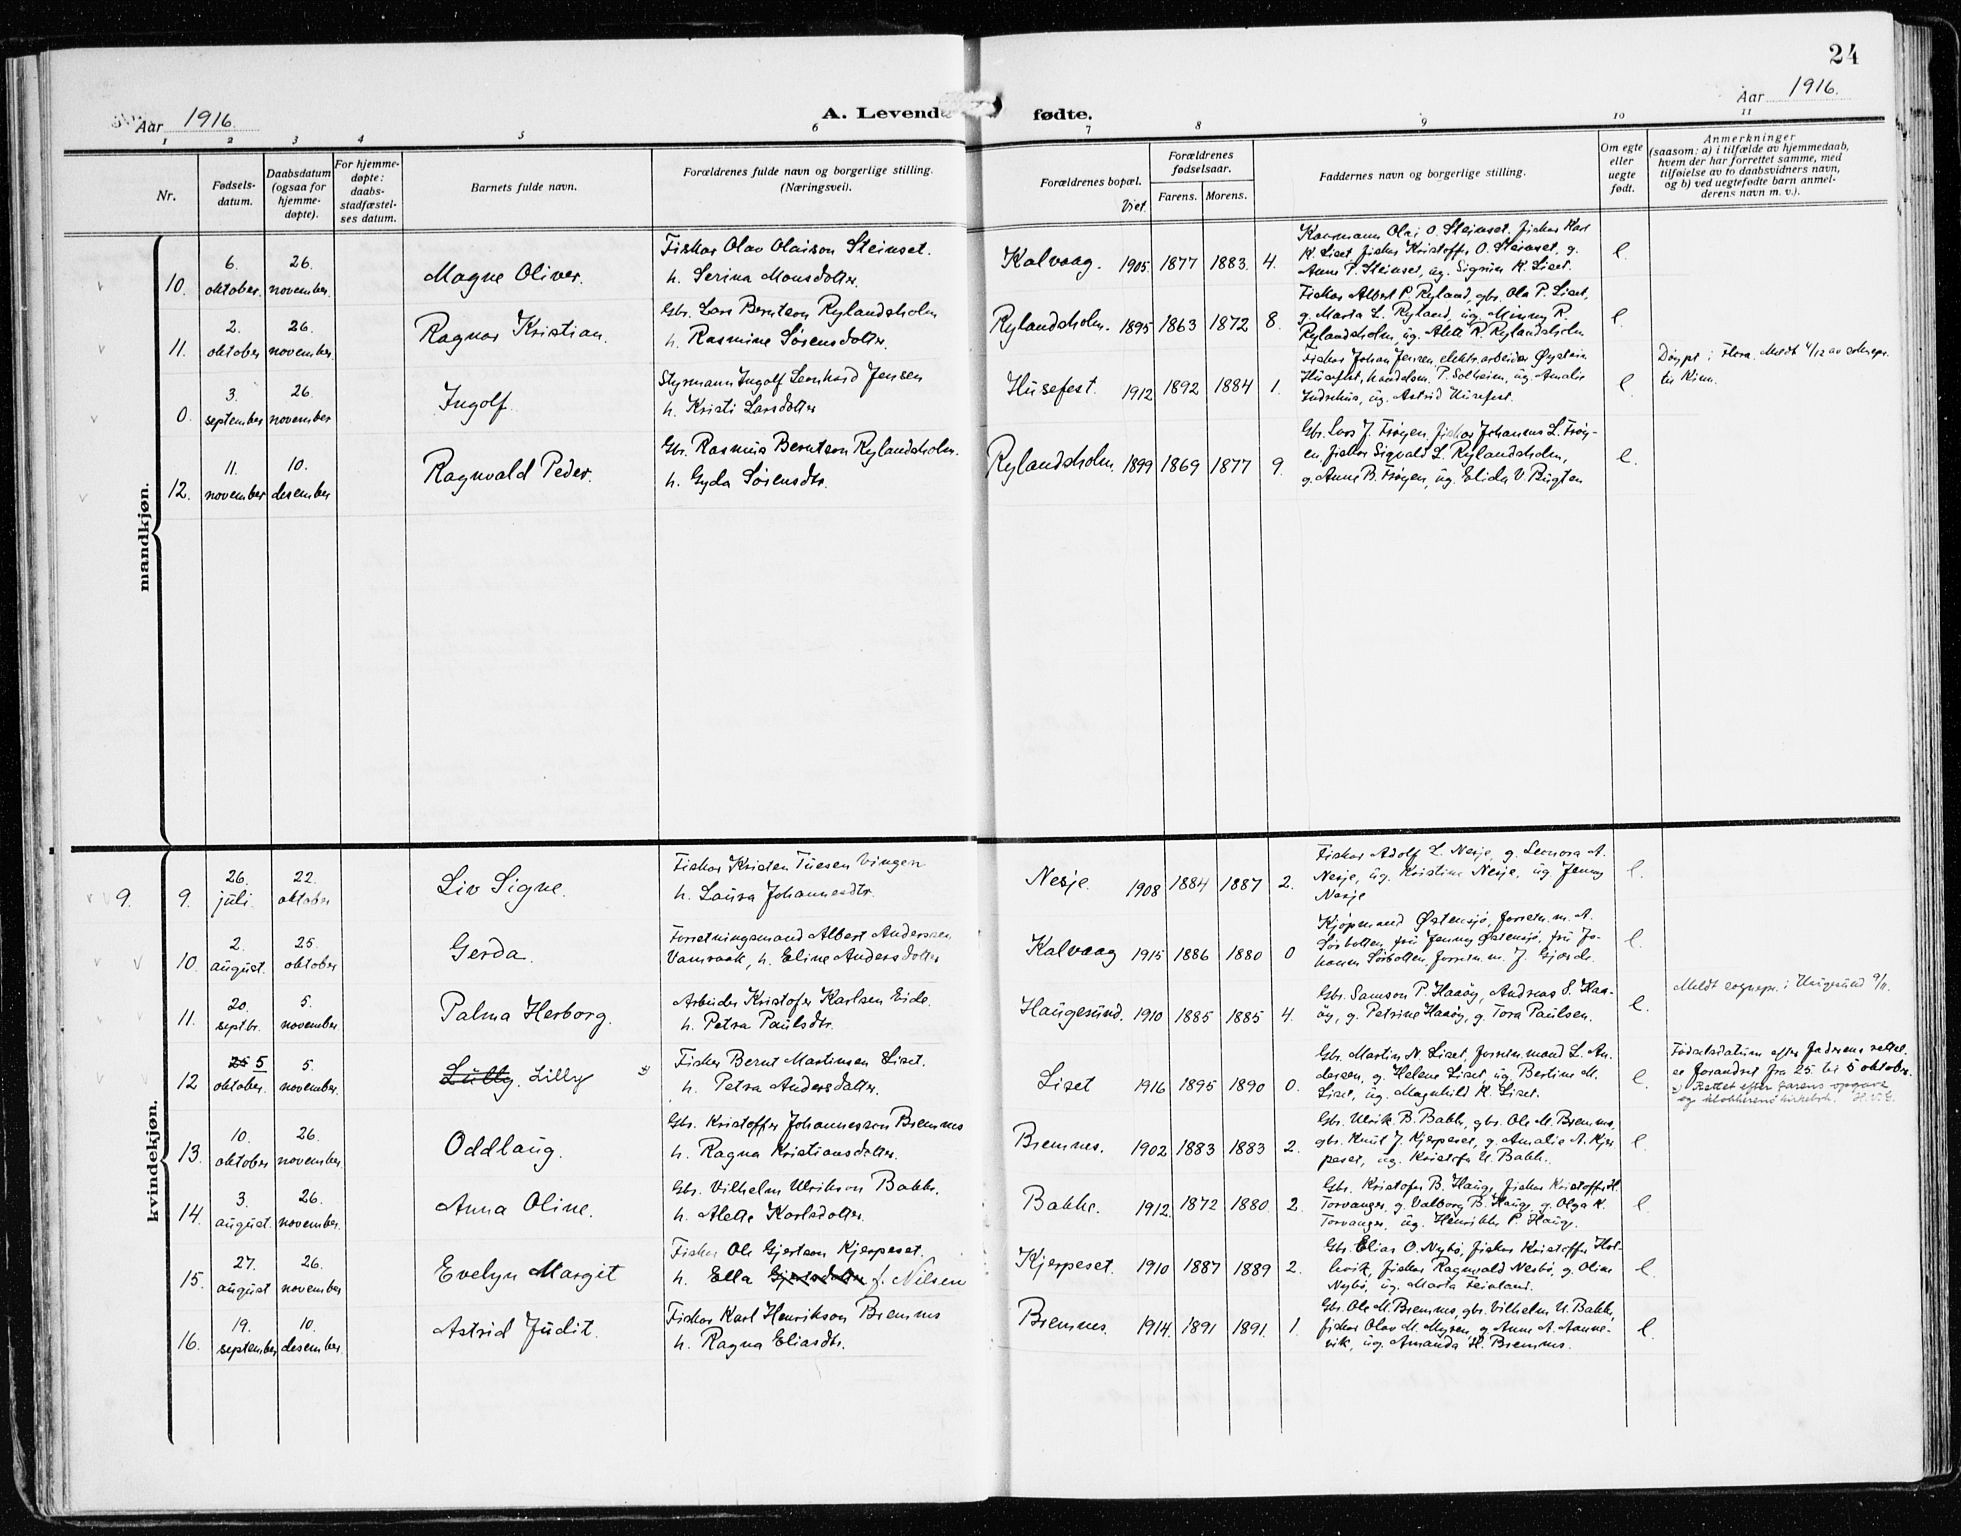 24
Aar 1916.
A. Levende fødte.
Aar 1916.
1 2 3 4 5 6 7 8 9 10 11
Nr.
Fødsels-
datum.
Daabsdatum
(ogsaa for
hjemme-
døpte).
For hjemme-
døpte:
daabs-
stadfæstel-
ses datum.
Barnets fulde navn.
Forældrenes fulde navn og borgerlige stilling.
(Næringsvei).
Forældrenes bopæl.
Viet.
Forældrenes
fødselsaar.
Farens. Morens.
Faddernes navn og borgerlige stilling.
Om egte
eller
uegte
født.
Anmerkninger
(saasom: a) i tilfælde av hjemmedaab,
hvem der har forrettet samme, med
tilføielse av to daabsvidners navn,
og b) ved uegtefødte barn anmel-
derens navn m. v.).
mandkjøn.
10. 6. oktober. 26. november. Magne Oliver.
Fisker Olav Olaison Steinset.
h. Serina Monsdotter.
Kalvaag. 1905 1877 1883. 4.
Olai O. Steinset, fisker Karl
K. Liset, fisker Kristoffer O. Steinset, g.
Anne P. Steinset, ug. Sigrun K. Liset.
e.
11. 2. oktober 26. november. Ragnar Kristian.
Gbr. Lars Berntson Rylandsholm
h. Rasmine Sørensdotter.
Rylandsholm. 1895 1863 1872 8.
Fisker Albert P. Ryland, gbr. Ola P. Liset,
g. Marta L. Ryland, ug. Minny R.
Rylandsholm, ug. Alette R. Rylandsholm
e.
0. 3. september 26. november Ingolf.
Styrmann Ingolf Leonhard Jensen
h. Kristi Larsdotter
Husefest. 1912 1892 1884 1.
Fisker Johan Jensen, elektr.arbeider Øystein
Husefest, handelsm. P. Solheim, ug. Amalie
Indrehus, ug. Astrid Husefest.
e.
Døypt i Flora. Meldt 4/12 av soknepr.
til Kinn.
12. 11. november 10. desember Ragnvald Peder.
Gbr. Rasmus Berntson Rylandsholm.
h. Gyda Sørensdtr.
Rylandsholm. 1899 1869 1877 9.
Gbr. Lars J. Frøyen, fisker Johannes L. Frøy-
en, fisker Sigvald L. Rylandsholm,
g. Anne B. Frøyen, ug. Elida V. Bugten
e.
kvindekjøn.
9. 9. 26. juli. 22. oktober Liv Signe.
Fisker Kristen Tuesen Vingen
h. Laura Johannesdtr.
Nesje. 1908 1884 1887 2.
Fisker Adolf L. Nesje, g. Leonora A.
Nesje, ug. Kristine Nesje, ug Jenny
Nesje
e.
10. 2. august. 25. oktober Gerda.
Forretningsmand Albert Anderssen
h. Eline Andersdotter
Kalvaag 1915 1886 1880 0
Kjøpmand Østensjø, forretn.m. A.
Sørbotten, fru Jenny Østensjø, fru Jo-
hanne Sørbotten, forretn.m. J. Gjærde.
e.
11. 20. septbr. 5. november. Palma Herborg.
Arbeider Kristofer Karlsen Eide.
h. Petra Paulsdtr.
Haugesund. 1910 1885 1885 4.
Gbr. Samson P. Haaøy, Andreas S. Haa-
øy, g. Petrine Haaøy, g. Tora Paulsen.
e.
Meldt sognepr. i Haugesund 9/11.
12 25 5 oktober. 5. november. Lully. Lilly
Fisker Bernt Martinsen Liset.
h. Petra Andersdotter.
Liset 1916 1895 1890 0.
Gbr. Martin N. Liset, forretn.mand L. An-
dersen, g. Helene Liset, ug. Bertine M.
Liset, ug. Magnhild K. Liset.
e.
Fødselsdatum efter faderens rettel.
er forandret fra 25. til 5 oktober.
Rettet efter farens opgave
og klokkerens kirkebok. H.V.E.
13. 10. oktober 26. november. Oddlaug.
Gbr. Kristoffer Johannesson Bremnes
h. Ragna Kristiansdotter.
Bremnes. 1902 1883 1883 2.
Gbr. Ulrik B. Bakke, gbr. Ole M. Bremnes,
gbr. Knut J. Kjerpeset, g. Amalie A. Kjer
peset, ug. Kristofa U. Bakke.
e.
14. 3. august. 26. november. Anna Oline.
Gbr. Vilhelm Ulrikson Bakke.
h. Alette Karlsdotter.
Bakke. 1912. 1872 1880 2.
Gbr. Kristofer B. Hauge, fisker Kristoffer H.
Torvanger, g. Valborg B. Hauge, g. Olga K.
Torvanger, ug. Henrikke P. Hauge.
e
15. 27. august 26. november Evelyn Margit
Fisker Ole Gjertson Kjerpeset.
h. Ella Gjertsdotter f. Nilsen
Kjerpeset. 1910 1887 1889 2.
Gbr. Elias O. Nybø, fisker Kristoffer Hol-
levik, fisker Ragnvald Nesbø, g. Oline
Nybø, ug. Marta Feioland.
e.
16. 19. september 10. desember. Astrid Judit.
Fisker Karl Henrikson Bremnes
h. Ragna Eliasdtr.
Bremnes. 1914. 1891 1891. 1.
Gbr. Ole M. Bremnes, gbr. Vilhelm U. Bakke,
fisker Olav M. Myren, g. Anne A. Aanne-
vik, ug. Amanda H. Bremnes.
e.